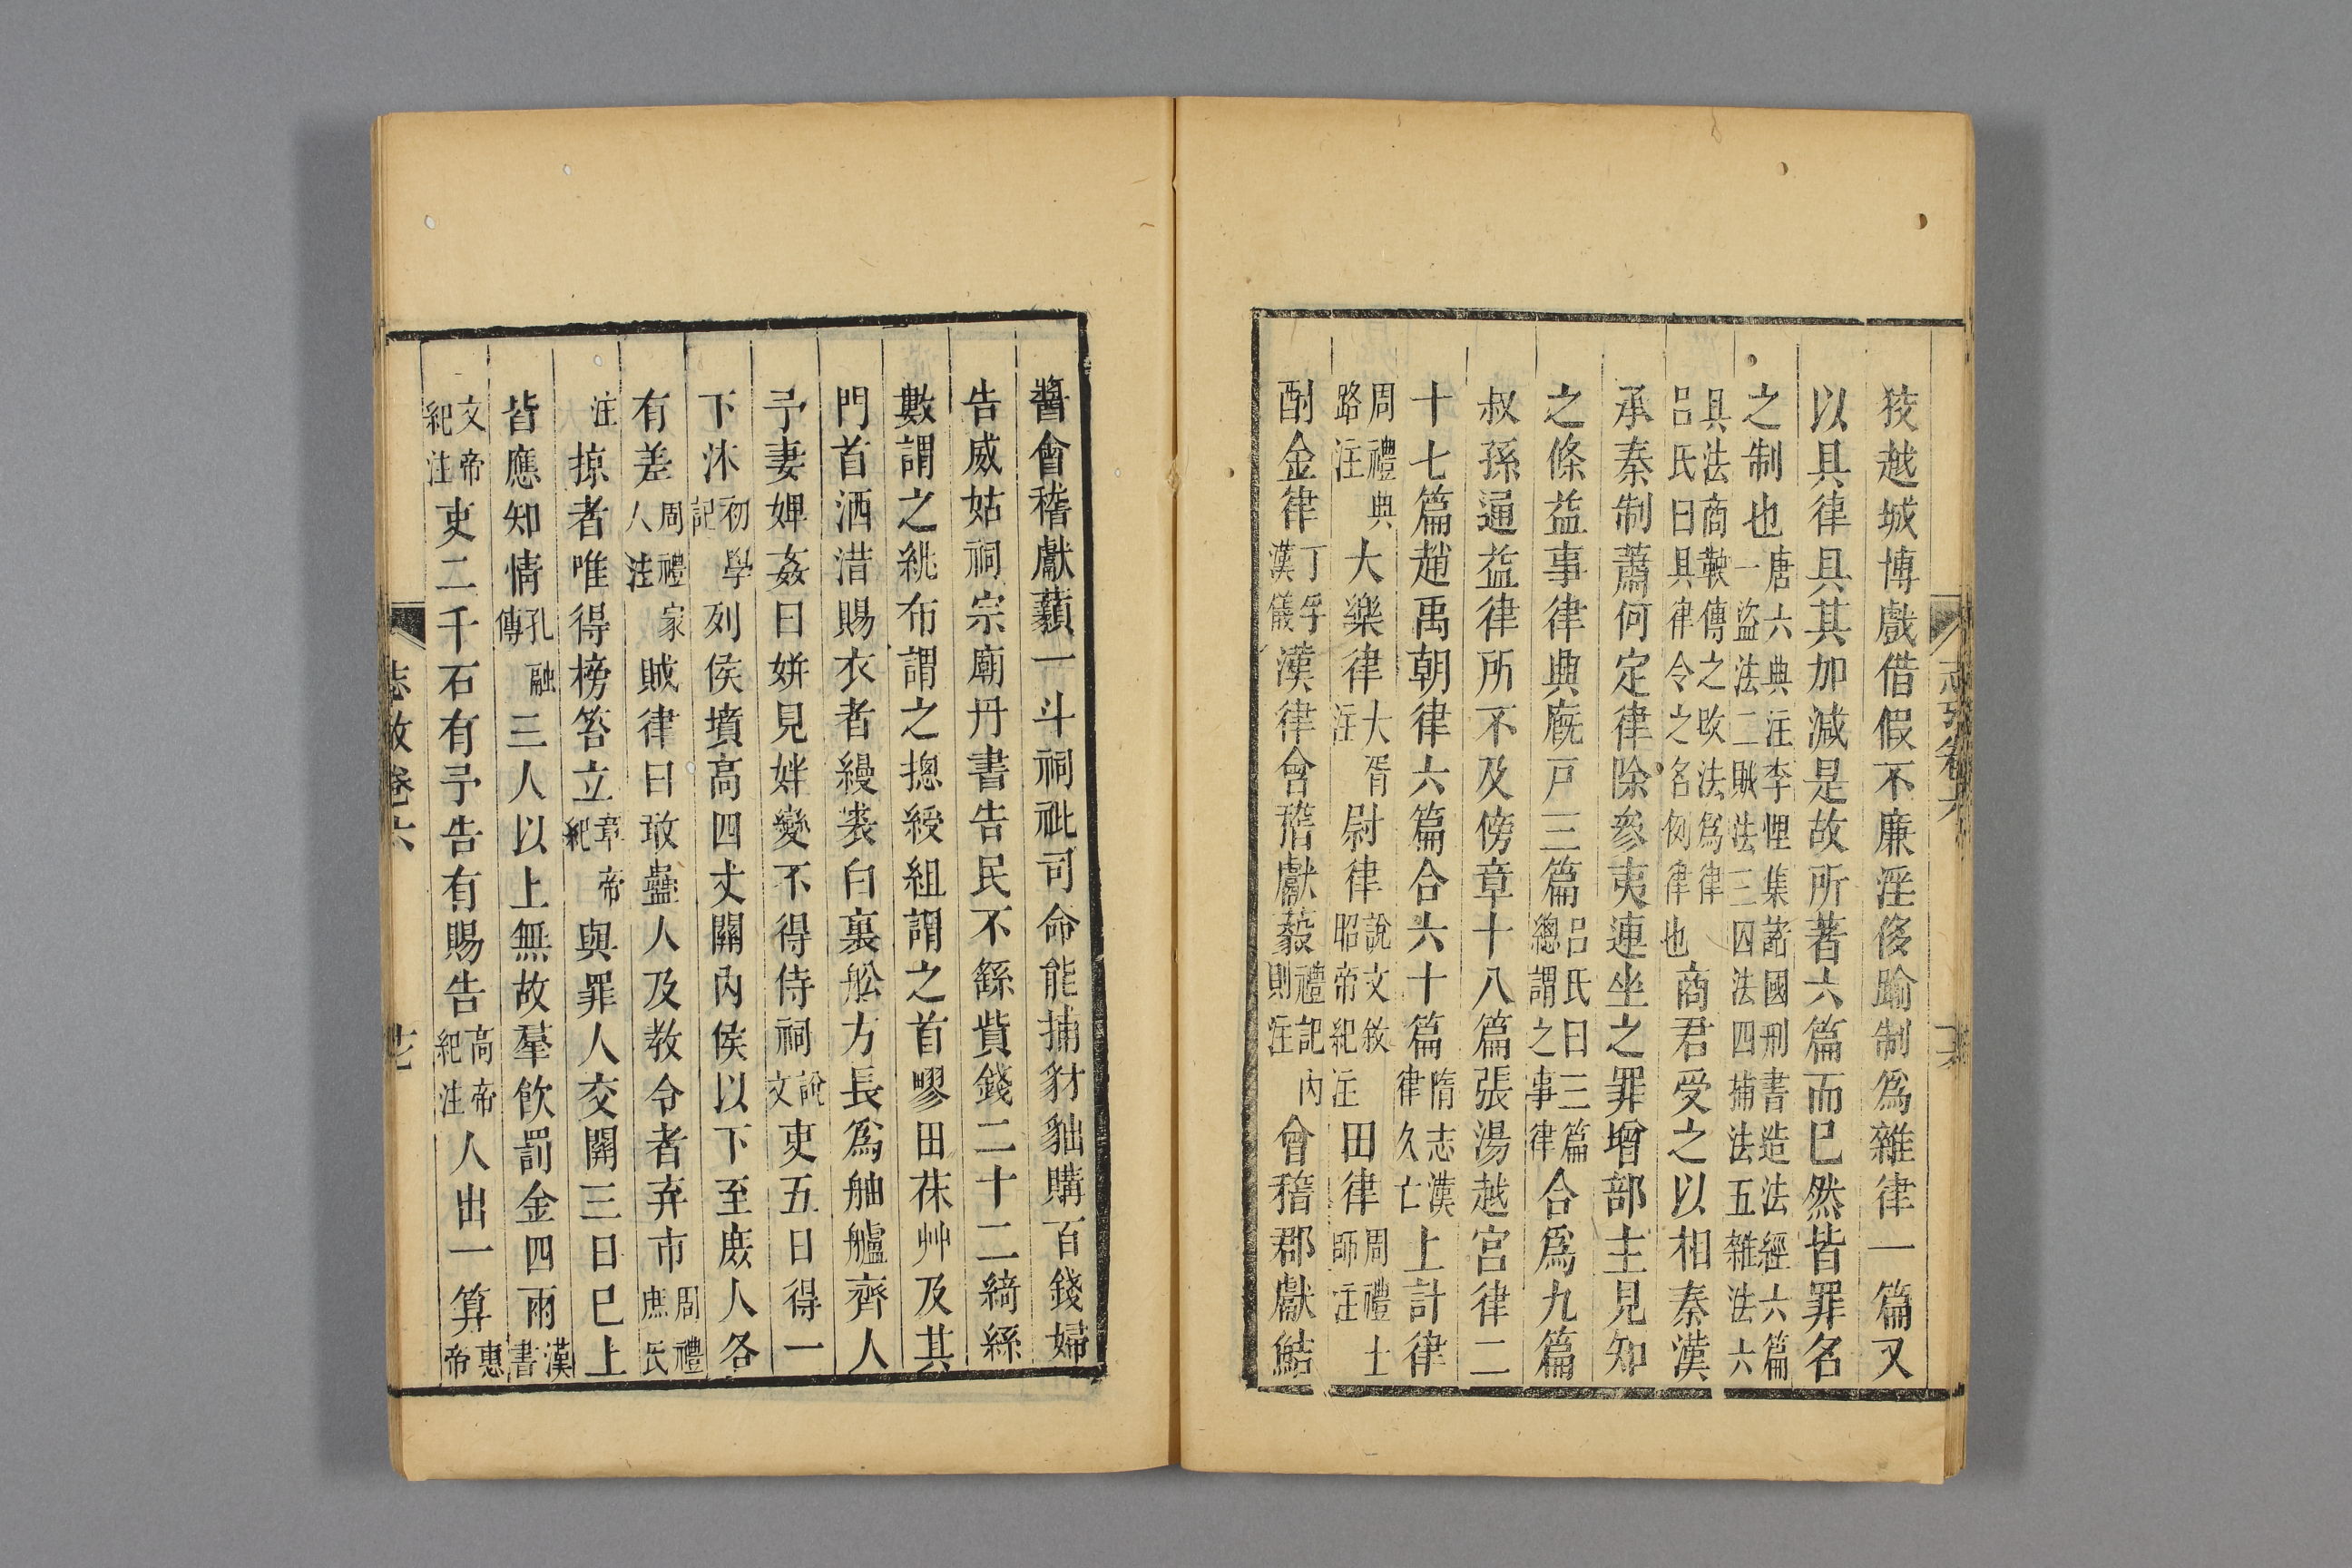 狡越城博戲借假不廉淫侈踰制爲雜律一篇又
以具律具其加減是故所著六篇而已然皆罪名
之制也唐六典注李悝集諸國刑書造法經六篇一盜法二賊法三囚法四捕法五雜法六
具法商鞅傳之改法爲律呂氏曰具律令之名例律也商君受之以相秦漢
承秦制蕭何定律除參夷連坐之罪增部主見知
之條益事律典廐戸三篇呂氏曰三篇總謂之事律合爲九篇
叔孫通益律所不及傍章十八篇張湯越宮律二
十七篇趙禹朝律六篇合六十篇隋志漢律久亡上計律
周禮典路注大樂律大胥注尉律說文敘昭帝紀注田律周禮士師注
酎金律丁孚漢儀漢律會稽獻藙禮記內則注會稽郡獻鮚
醬會稽獻蘱一斗祠祉司命能捕豺貀購百錢婦
告威姑祠宗廟丹書告民不繇貲錢二十二綺絲
數謂之絩布謂之揔綬組謂之首疁田茠艸及其
門首洒浩賜衣者縵裘白裏舩方長爲舳艫齊人
予妻婢姦曰姘見姅變不得侍祠說文吏五日得一
下沐初學記列侯墳高四丈關內侯以下至庶人各
有差周禮家人注賊律曰敢蠱人及教令者弃市周禮庶氏
注掠者唯得榜笞立章帝紀與罪人交關三日已上
皆應知情孔融傳三人以上無故羣飲罰金四兩漢書
文帝紀注吏二千石有予告有賜告高帝紀注人出一算惠帝
志攷卷六